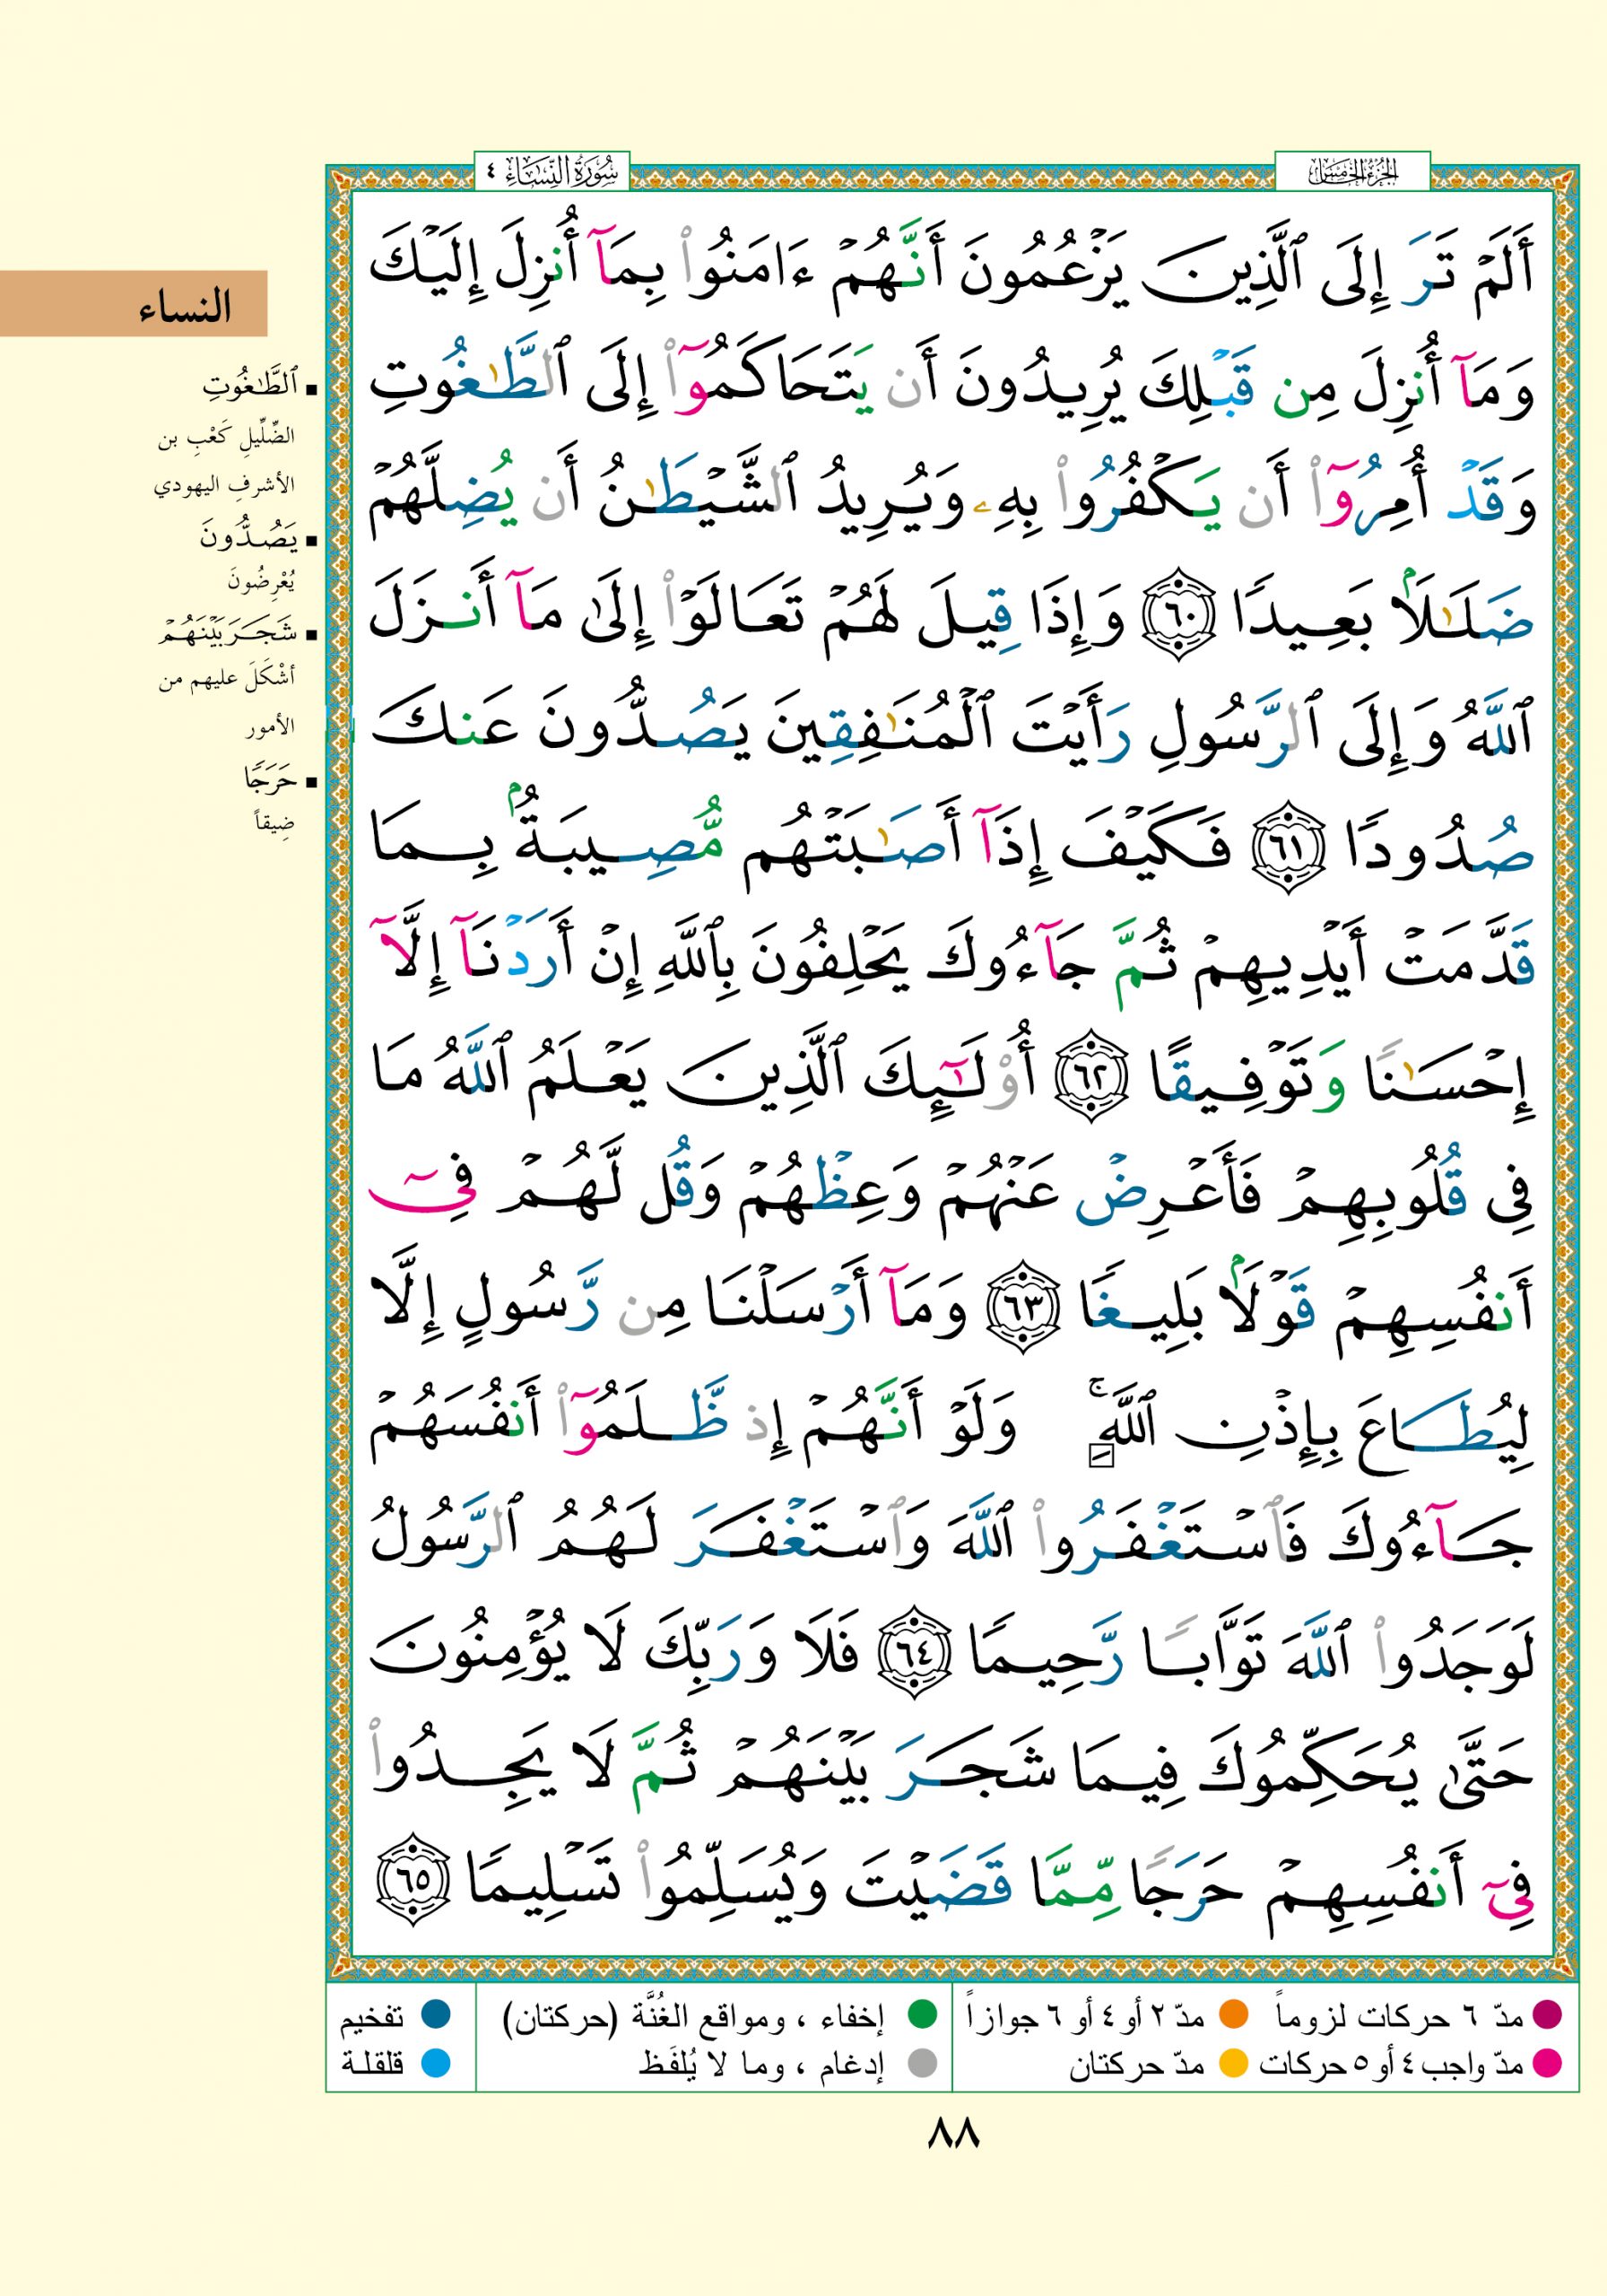 الجزء الخامس
سورة النساء ٤
أَلَمْ تَرَ إِلَى ٱلَّذِينَ يَزْعُمُونَ أَنَّهُمْ ءَامَنُوا۟ بِمَآ أُنزِلَ إِلَيْكَ
وَمَآ أُنزِلَ مِن قَبْلِكَ يُرِيدُونَ أَن يَتَحَاكَمُوٓا۟ إِلَى ٱلطَّٰغُوتِ
وَقَدْ أُمِرُوٓا۟ أَن يَكْفُرُوا۟ بِهِۦ وَيُرِيدُ ٱلشَّيْطَٰنُ أَن يُضِلَّهُمْ
ضَلَٰلًۢا بَعِيدًا ٦٠ وَإِذَا قِيلَ لَهُمْ تَعَالَوْا۟ إِلَىٰ مَآ أَنزَلَ
ٱللَّهُ وَإِلَى ٱلرَّسُولِ رَأَيْتَ ٱلْمُنَٰفِقِينَ يَصُدُّونَ عَنكَ
صُدُودًا ٦١ فَكَيْفَ إِذَآ أَصَٰبَتْهُم مُّصِيبَةٌۢ بِمَا
قَدَّمَتْ أَيْدِيهِمْ ثُمَّ جَآءُوكَ يَحْلِفُونَ بِٱللَّهِ إِنْ أَرَدْنَآ إِلَّآ
إِحْسَٰنًا وَتَوْفِيقًا ٦٢ أُو۟لَٰٓئِكَ ٱلَّذِينَ يَعْلَمُ ٱللَّهُ مَا
فِى قُلُوبِهِمْ فَأَعْرِضْ عَنْهُمْ وَعِظْهُمْ وَقُل لَّهُمْ فِىٓ
أَنفُسِهِمْ قَوْلًۢا بَلِيغًا ٦٣ وَمَآ أَرْسَلْنَا مِن رَّسُولٍ إِلَّا
لِيُطَاعَ بِإِذْنِ ٱللَّهِ ۚ وَلَوْ أَنَّهُمْ إِذ ظَّلَمُوٓا۟ أَنفُسَهُمْ
جَآءُوكَ فَٱسْتَغْفَرُوا۟ ٱللَّهَ وَٱسْتَغْفَرَ لَهُمُ ٱلرَّسُولُ
لَوَجَدُوا۟ ٱللَّهَ تَوَّابًا رَّحِيمًا ٦٤ فَلَا وَرَبِّكَ لَا يُؤْمِنُونَ
حَتَّىٰ يُحَكِّمُوكَ فِيمَا شَجَرَ بَيْنَهُمْ ثُمَّ لَا يَجِدُوا۟
فِىٓ أَنفُسِهِمْ حَرَجًا مِّمَّا قَضَيْتَ وَيُسَلِّمُوا۟ تَسْلِيمًا ٦٥
النساء
▪ ٱلطَّٰغُوتِ
الضِّلِّيلِ كَعْبِ بن
الأشرفِ اليهودي
▪ يَصُدُّونَ
يُعْرِضُونَ
▪ شَجَرَ بَيْنَهُمْ
أشْكَلَ عليهم من
الأمور
▪ حَرَجًا
ضِيقاً
مدّ ٦ حركات لزوماً
مدّ ٢ أو ٤ أو ٦ جوازاً
إخفاء ، ومواقع الغُنَّة (حركتان)
تفخيم
مدّ واجب ٤ أو ٥ حركات
مدّ حركتان
إدغام ، وما لا يُلفَظ
قلقلة
٨٨